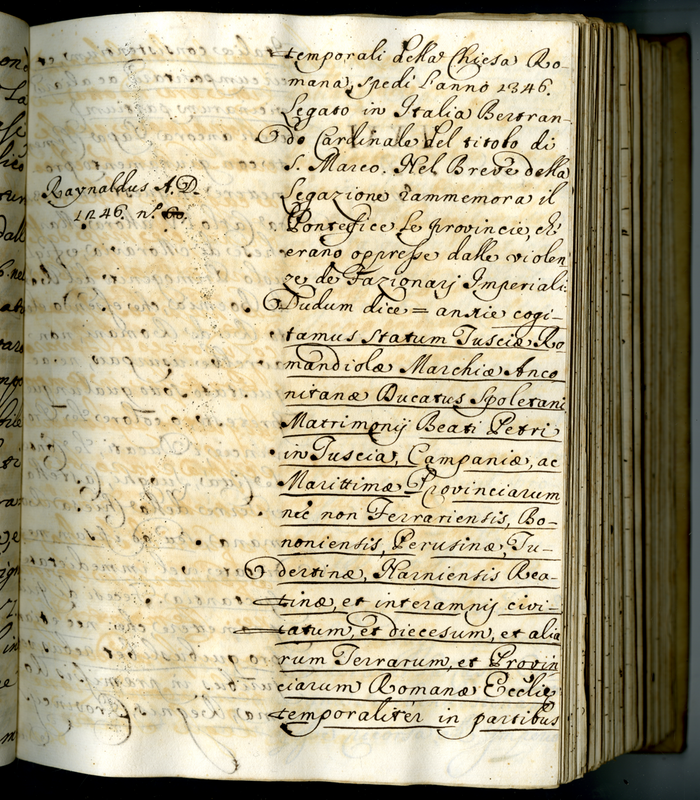 temporali della Chiesa Ro-
mana, spedì l'anno 1346.
Legato in Italia Bertran-
do Cardinale del titolo di
S. Marco. Nel Breve della
Legazione rammemora il
Pontefice le provincie, ch'
erano oppresse dalle violen
ze de Fazionarj Imperiali:
Dudum dice = anxie cogi-
tamus statum Tusciæ Ro
mandiolæ Marchiæ Anco
nitanæ Ducatus Spoletani
Matrimonij Beati Petri
in Tuscia, Campaniæ, ac
Marittimæ Provinciarum
nec non Ferrariensis, Bo-
noniensis, Perusinæ, Tu-
dertinæ, Narniensis Rea-
tinæ, et interamnij civi-
tatum, et diecesum, et alia
rum Terrarum, et Provin
ciarum Romanæ Ecclię
temporaliter in partibus
Raynaldus A.D.
1246. n.°